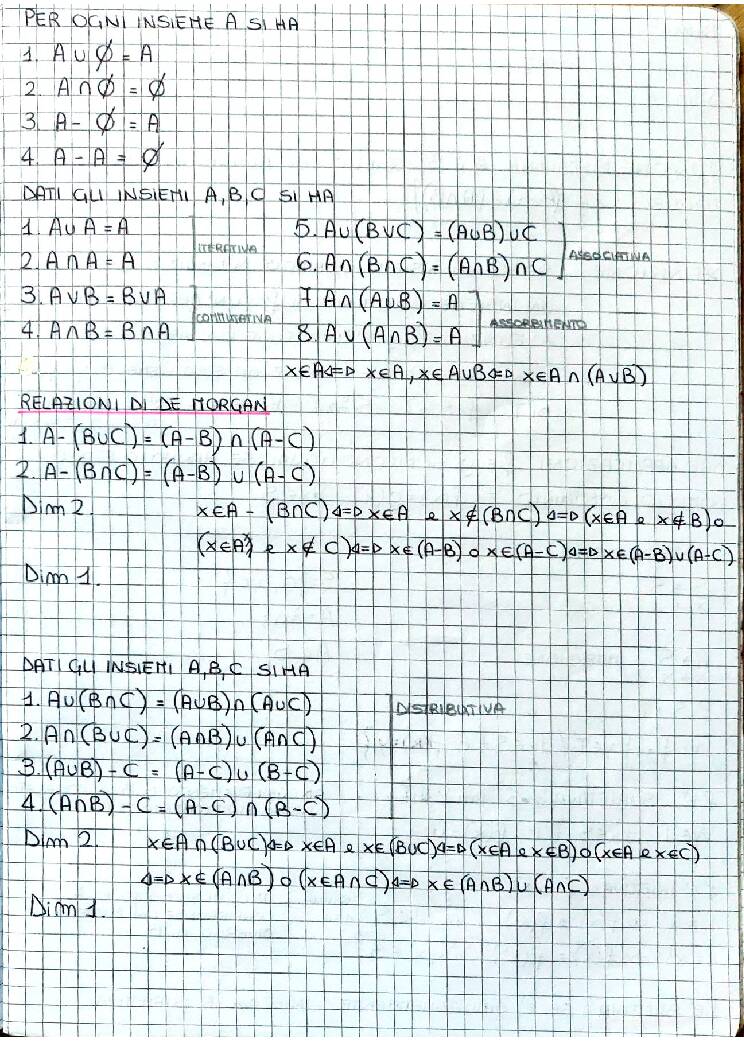 PER OGNI INSIEME A SI HA
1. A ∪ ∅ = A
2. A ∩ ∅ = ∅
3. A - ∅ = A
4. A - A = ∅
DATI GLI INSIEMI A, B, C SI HA
1. A∪A = A
2. A∩A = A
ITERATIVA
3. A∪B = B∪A
4. A∩B = B∩A
COMMUTATIVA
5. A∪(B∪C) = (A∪B)∪C
6. A∩(B∩C) = (A∩B)∩C
ASSOCIATIVA
7. A∩(A∪B) = A
8. A∪(A∩B) = A
ASSORBIMENTO
x∈A⇔ x∈A, x∈A∪B⇔ x∈A∩(A∪B)
RELAZIONI DI DE MORGAN
1. A-(B∪C) = (A-B) ∩ (A-C)
2. A-(B∩C) = (A-B) ∪ (A-C)
Dim 2. x∈A - (B∩C)⇔ x∈A e x∉(B∩C) ⇔ (x∈A e x∉B) o
(x∈A) e x∉C)⇔ x∈(A-B) o x∈(A-C)⇔ x∈(A-B)∪(A-C)
Dim 1.
DATI GLI INSIEMI A, B, C SI HA
1. A∪(B∩C) = (A∪B)∩(A∪C)
2. A∩(B∪C) = (A∩B)∪(A∩C)
3. (A∪B) - C = (A-C)∪(B-C)
4. (A∩B) - C = (A-C) ∩ (B-C)
DISTRIBUTIVA
Dim 2. x∈A∩(B∪C)⇔ x∈A e x∈(B∪C)⇔(x∈A e x∈B) o (x∈A e x∈C)
⇔ x∈(A∩B) o (x∈A∩C)⇔ x∈(A∩B)∪(A∩C)
Dim 1.